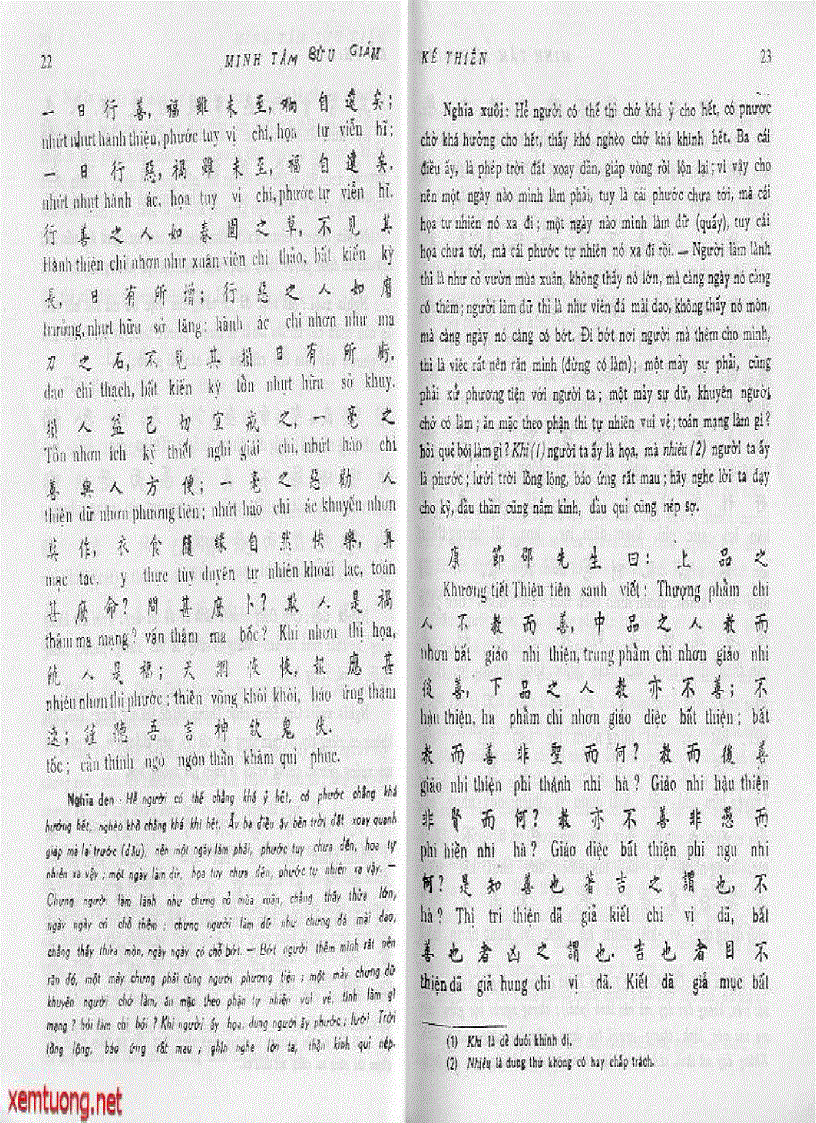 22 MINH TÂM BỬU GIÁM
一日行善,福雖未至,禍自遠矣;
nhứt nhựt hành thiện, phước tuy vị chí, họa tự viễn hĩ;
一日行惡,禍雖未至,福自遠矣.
nhứt nhựt hành ác, họa tuy vị chí, phước tự viễn hĩ.
行善之人如春園之草,不見其
Hành thiện chi nhơn như xuân viên chi thảo, bất kiến kỳ
長,日有所增;行惡之人如磨
trưởng, nhựt hữu sở tăng; hành ác chi nhơn như ma
刀之石,不見其損日有所虧.
dao chi thạch, bất kiến kỳ tổn nhựt hữu sở khuy.
損人益己切宜戒之,一毫之
Tổn nhơn ích kỷ thiết nghi giái chi, nhứt hào chi
善與人方便;一毫之惡勸人
thiện dữ nhơn phương tiện; nhứt hào chi ác khuyến nhơn
莫作,衣食隨緣自然快樂,算
mạc tác, y thực tùy duyên tự nhiên khoái lạc, toán
甚麼命?問甚麼卜?欺人是禍
thậm ma mạng? vấn thậm ma bốc? Khi nhơn thị họa,
饒人是福;天網恢恢,報應甚
nhiêu nhơn thị phước; thiên võng khôi khôi, báo ứng thậm
速;謹聽吾言神欽鬼伏.
tốc; cẩn thính ngô ngôn thần khâm quỉ phục.
Nghĩa đen - Hễ người có thế chẳng khá ỷ hết, có phước chẳng khá
hưởng hết, nghèo khó chẳng khá khi hết. Ấy ba điều ấy bèn trời đất xoay quanh
giáp mà lại trước (đầu), nên một ngày làm phải, phước tuy chưa đến, họa tự
nhiên xa vậy; một ngày làm dữ, họa tuy chưa đến, phước tự nhiên xa vậy. —
Chưng người làm lành như chưng cỏ mùa xuân, chẳng thấy thửa lớn,
ngày ngày có chỗ thêm; chưng người làm dữ như chưng đá mài dao,
chẳng thấy thửa mòn, ngày ngày có chỗ bớt. — Bớt người thêm mình rất nên
răn đó, một mảy chưng phải cùng người phương tiện; một mảy chưng dữ
khuyên người chớ làm, ăn mặc theo phận tự nhiên vui vẻ, tính làm gì
mạng? bói làm chi bói? Khi người ấy họa, dung người ấy phước; lưới Trời
lồng lộng, báo ứng rất mau; ghín nghe lời ta, thần kính quỉ nép.
KẾ THIỆN 23
Nghĩa xuôi: Hễ người có thế thì chớ khá ỷ cho hết, có phước
chớ khá hưởng cho hết, thấy khó nghèo chớ khá khinh hết. Ba cái
điều ấy, là phép trời đất xoay dần, giáp vòng rồi lộn lại; vì vậy cho
nên một ngày nào mình làm phải, tuy là cái phước chưa tới, mà cái
họa tự nhiên nó xa đi; một ngày nào mình làm dữ (quấy), tuy cái
họa chưa tới, mà cái phước tự nhiên nó xa đi rồi. — Người làm lành
thì là như cỏ vườn mùa xuân, không thấy nó lớn, mà càng ngày nó càng
có thêm; người làm dữ thì là như viên đá mài dao, không thấy nó mòn,
mà càng ngày nó càng có bớt. Đi bớt nơi người mà thêm cho mình,
thì là việc rất nên răn mình (đừng có làm); một mảy sự phải, cũng
phải xử phương tiện với người ta; một mảy sự dữ, khuyên người
chớ có làm; ăn mặc theo phận thì tự nhiên vui vẻ; toán mạng làm gì?
hỏi quẻ bói làm gì? Khi (1) người ta ấy là họa, mà nhiêu (2) người ta ấy
là phước; lưới trời lồng lộng, báo ứng rất mau; hãy nghe lời ta dạy
cho kỹ, dầu thần cũng nắm kính, dầu quỉ cũng nép sợ.
康節邵先生曰:上品之
Khương tiết Thiệu tiên sanh viết: Thượng phẩm chi
人不教而善,中品之人教而
nhơn bất giáo nhi thiện, trung phẩm chi nhơn giáo nhi
後善,下品之人教亦不善;不
hậu thiện, hạ phẩm chi nhơn giáo diệc bất thiện; bất
教而善非聖而何?教而後善
giáo nhi thiện phi thánh nhi hà? Giáo nhi hậu thiện
非賢而何?教亦不善非愚而
phi hiền nhi hà? Giáo diệc bất thiện phi ngu nhi
何?是知善也者吉之謂也,不
hà? Thị tri thiện dã giả kiết chi vị dã, bất
善也者凶之謂也.吉也者目不
thiện dã giả hung chi vị dã. Kiết dã giả mục bất
(1) Khi là dể duôi khinh dị.
(2) Nhiêu là dung thứ không có hay chấp trách.
xemtuong.net